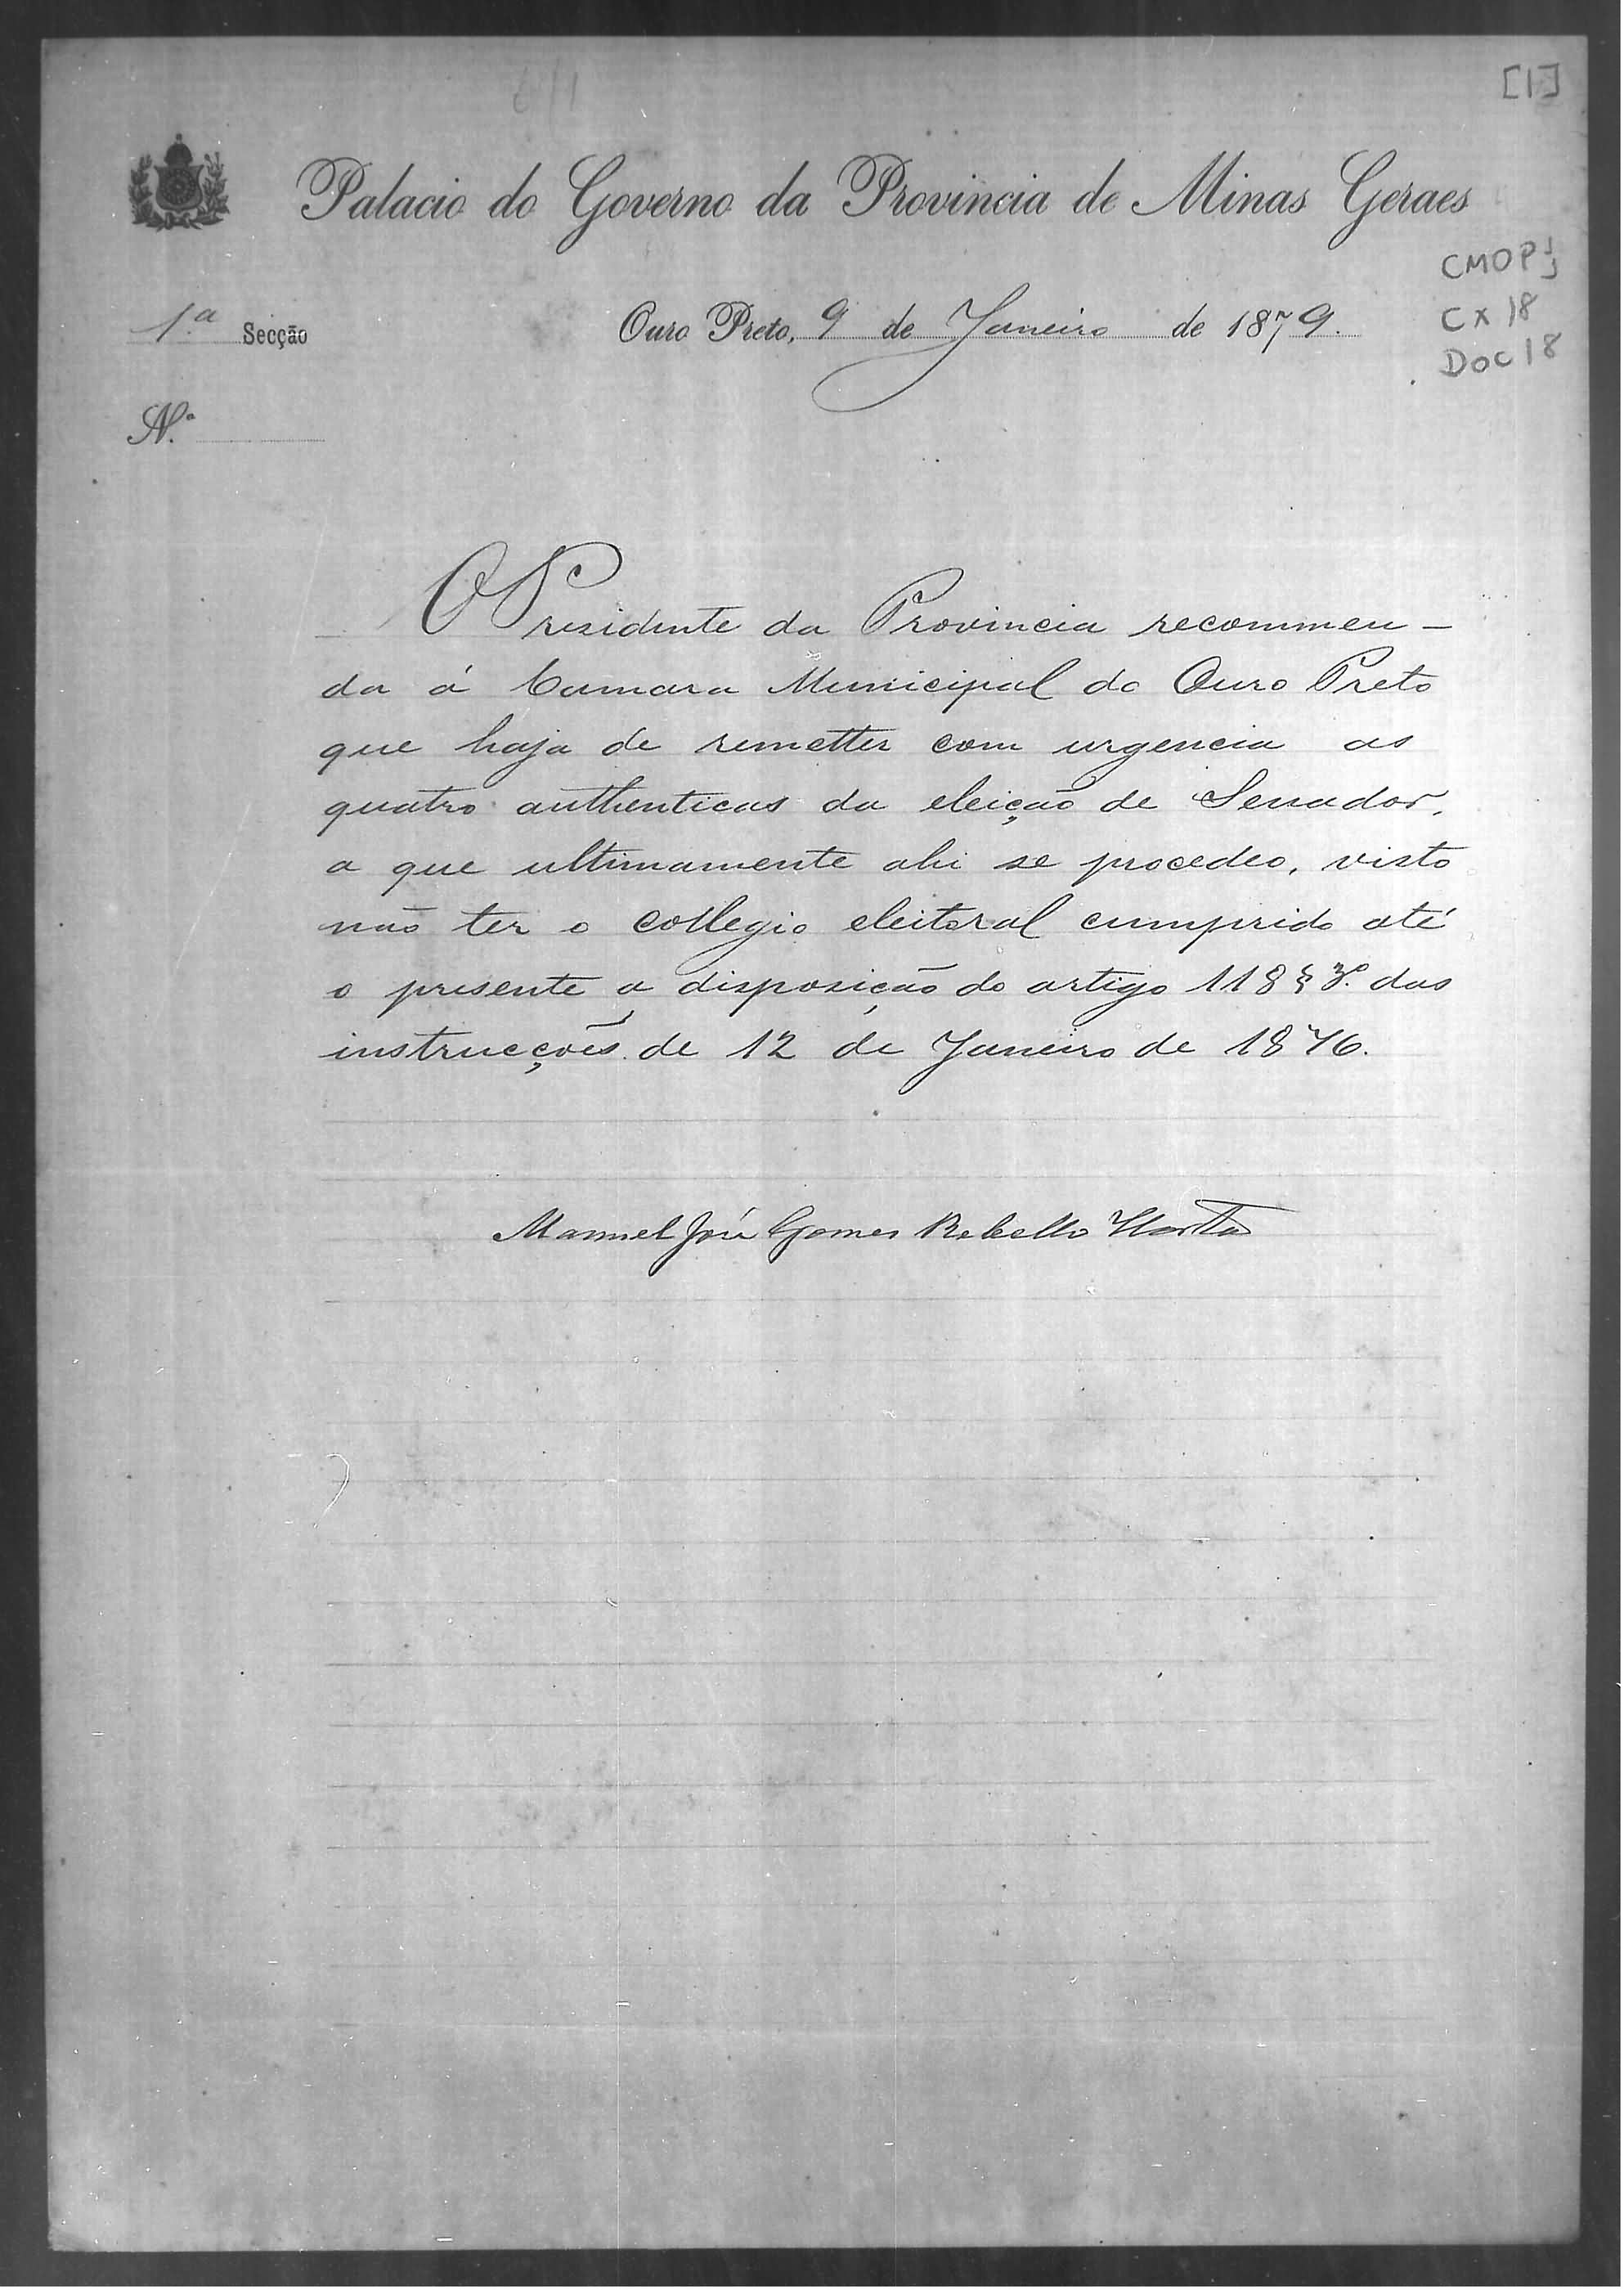 [1]
Palacio do Governo da Provincia de Minas Geraes
CMOPJ
CX 18
DOC 18
1.ª Secção
Ouro Preto, 9 de Janeiro de 1879.
N.º
O Presidente da Provincia recommen-
da á Camara Municipal do Ouro Preto
que haja de remetter com urgencia as
quatro authenticas da eleição de Senador,
a que ultimamente ahi se procedeo, visto
não ter o collegio eleitoral cumprido até
o presente a disposição do artigo 118 § 3º. das
instrucções de 12 de Janeiro de 1876.
Manuel José Gomes Rebello Horta